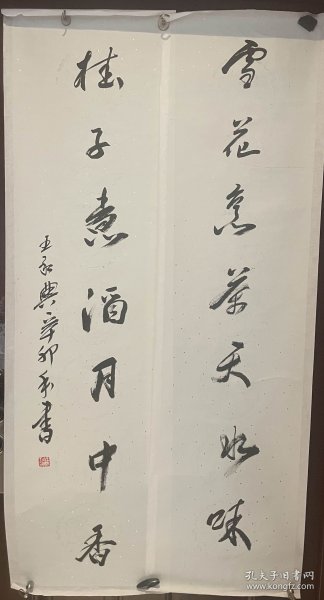 雪花烹茶天水味
桂子煮酒月中香
王和典辛卯秋書
孔夫子旧书网
www.kongfz.com